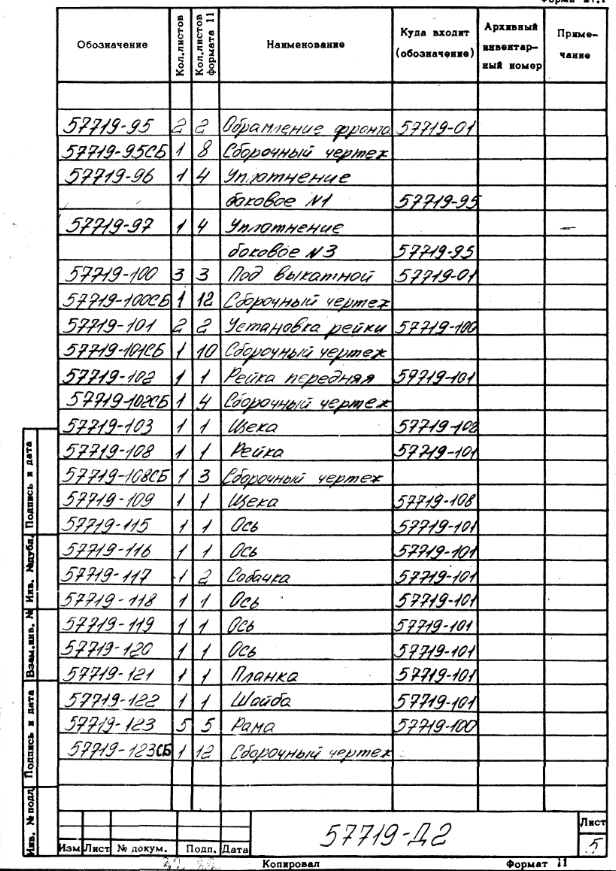 Обозначение Кол.листов Кол.листов формата 11 Наименование Куда входит (обозначение) Архивный инвентар-ный номер Приме-чание
57719-95 2 2 Обрамление фронта 57719-01
57719-95СБ 1 8 Сборочный чертеж
57719-96 1 4 Уплотнение
боковое N1 57719-95
57719-97 1 4 Уплотнение
боковое N3 57719-95
57719-100 3 3 Под выкатной 57719-01
57719-100СБ 1 12 Сборочный чертеж
57719-101 2 2 Установка рейки 57719-100
57719-101СБ 1 10 Сборочный чертеж
57719-102 1 1 Рейка передняя 57719-101
57719-102СБ 1 4 Сборочный чертеж
57719-103 1 1 Щека 57719-102
57719-108 1 1 Рейка 57719-101
57719-108СБ 1 3 Сборочный чертеж
57719-109 1 1 Щека 57719-108
57719-115 1 1 Ось 57719-101
57719-116 1 1 Ось 57719-101
57719-117 1 2 Собачка 57719-101
57719-118 1 1 Ось 57719-101
57719-119 1 1 Ось 57719-101
57719-120 1 1 Ось 57719-101
57719-121 1 1 Планка 57719-101
57719-122 1 1 Шайба 57719-101
57719-123 5 5 Рама 57719-100
57719-123СБ 1 12 Сборочный чертеж
Инв. № подл Подпись и дата Взам.инв. № Инв. №дубл. Подпись и дата
57719-Д2
Лист
5
Изм Лист № докум. Подп. Дата
Копировал Формат 11